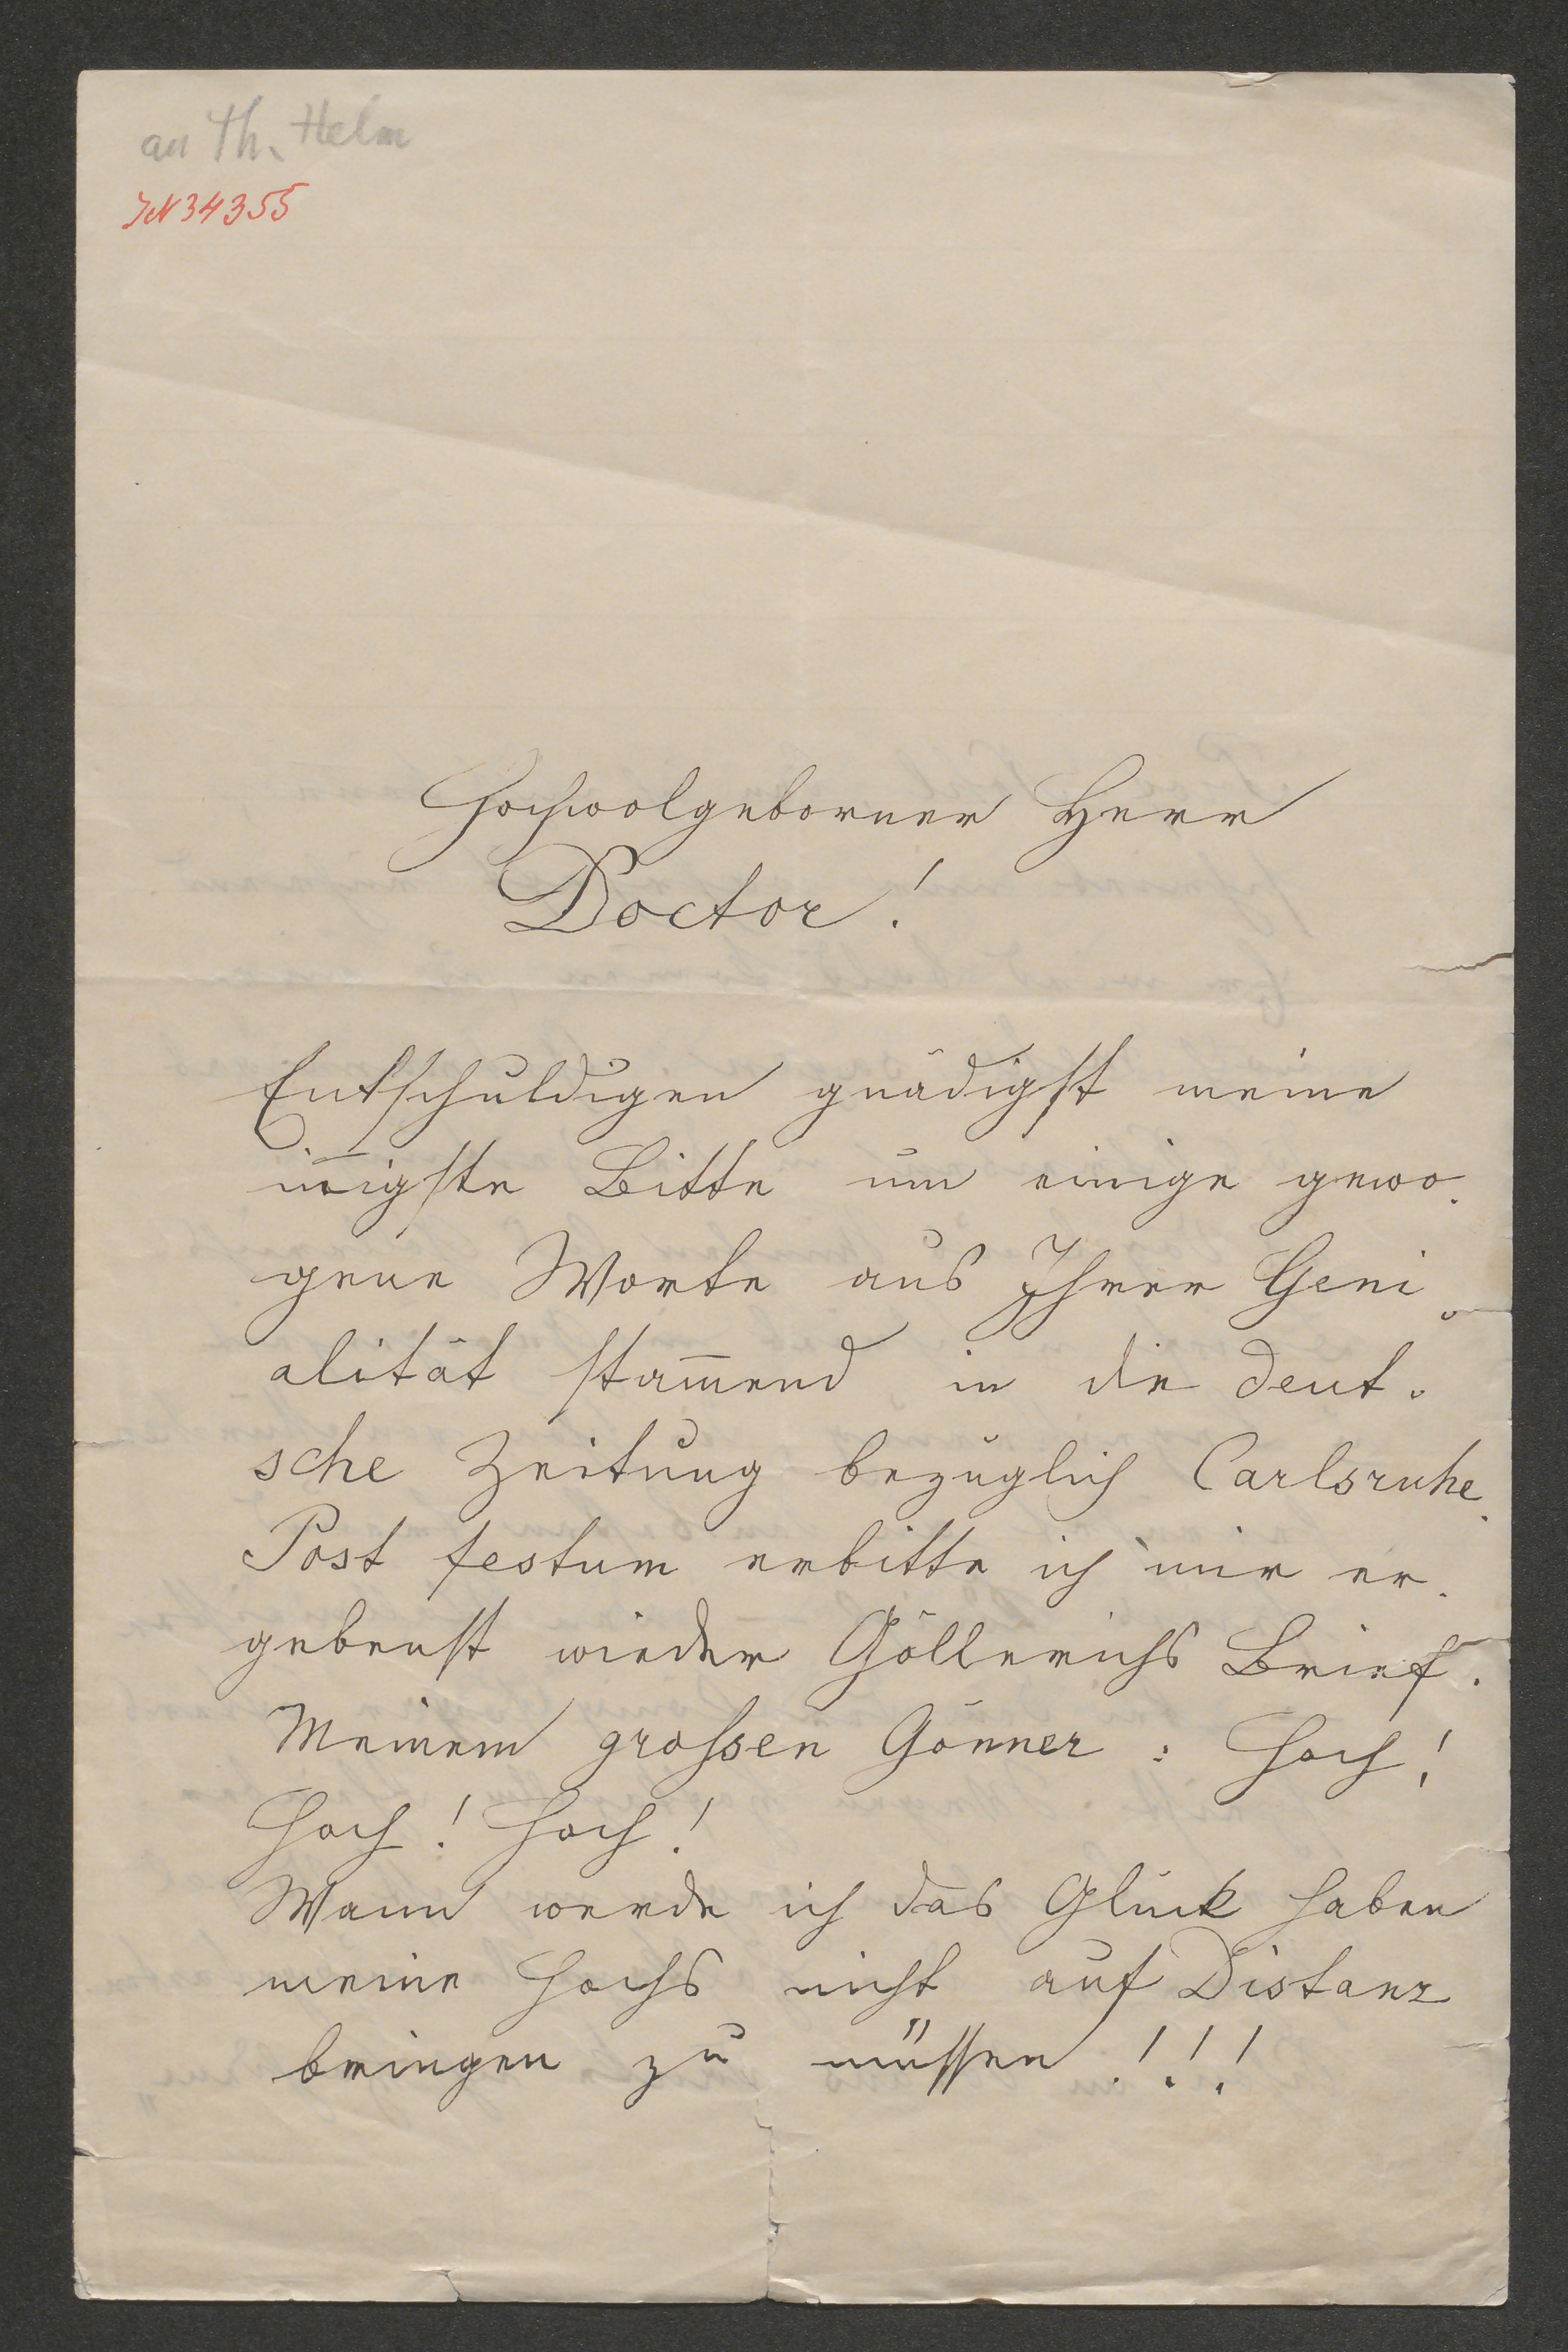 an Th. Helm
IN 34355
Hochwolgeborner Herr
Doctor!
Entschuldigen gnädigst meine
in̄igste Bitte um einige gewo-
gene Worte aus Ihrer Geni-
alität stam̄end in die deut-
sche Zeitung bezüglich Carlsruhe.
Post festum erbitte ich mir er-
gebenst wieder Göllerichs Brief.
Meinem grossen Gönner: Hoch!
Hoch! Hoch!
Wann werde ich das Glück haben
meine Hochs nicht auf Distanz
bringen zu müssen!!!